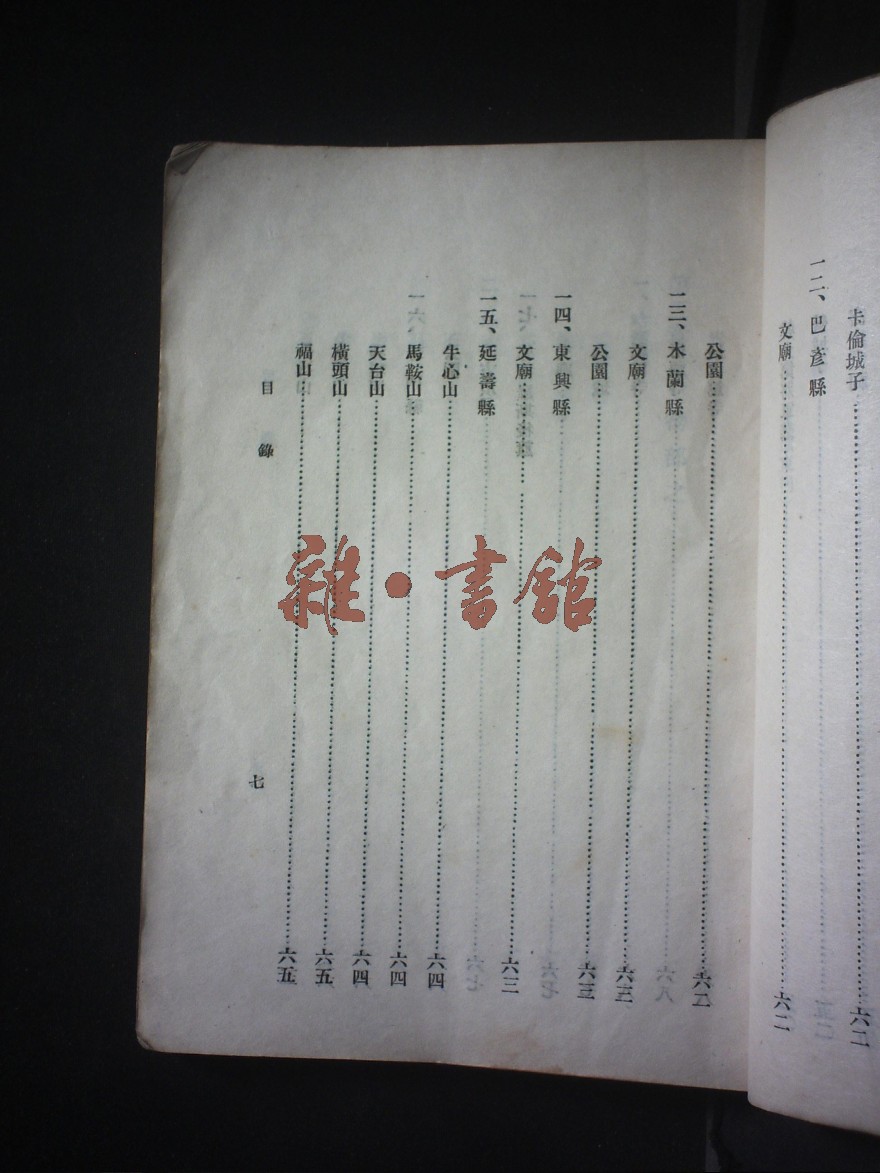 卡倫城子………六二
一二、巴彥縣
文廟………六二
公園………六二
一三、木蘭縣
文廟………六三
公園………六三
一四、東興縣
文廟………六三
一五、延壽縣
牛心山………六四
馬鞍山………六四
天台山………六四
橫頭山………六五
福山………六五
目錄
七
雜·書館